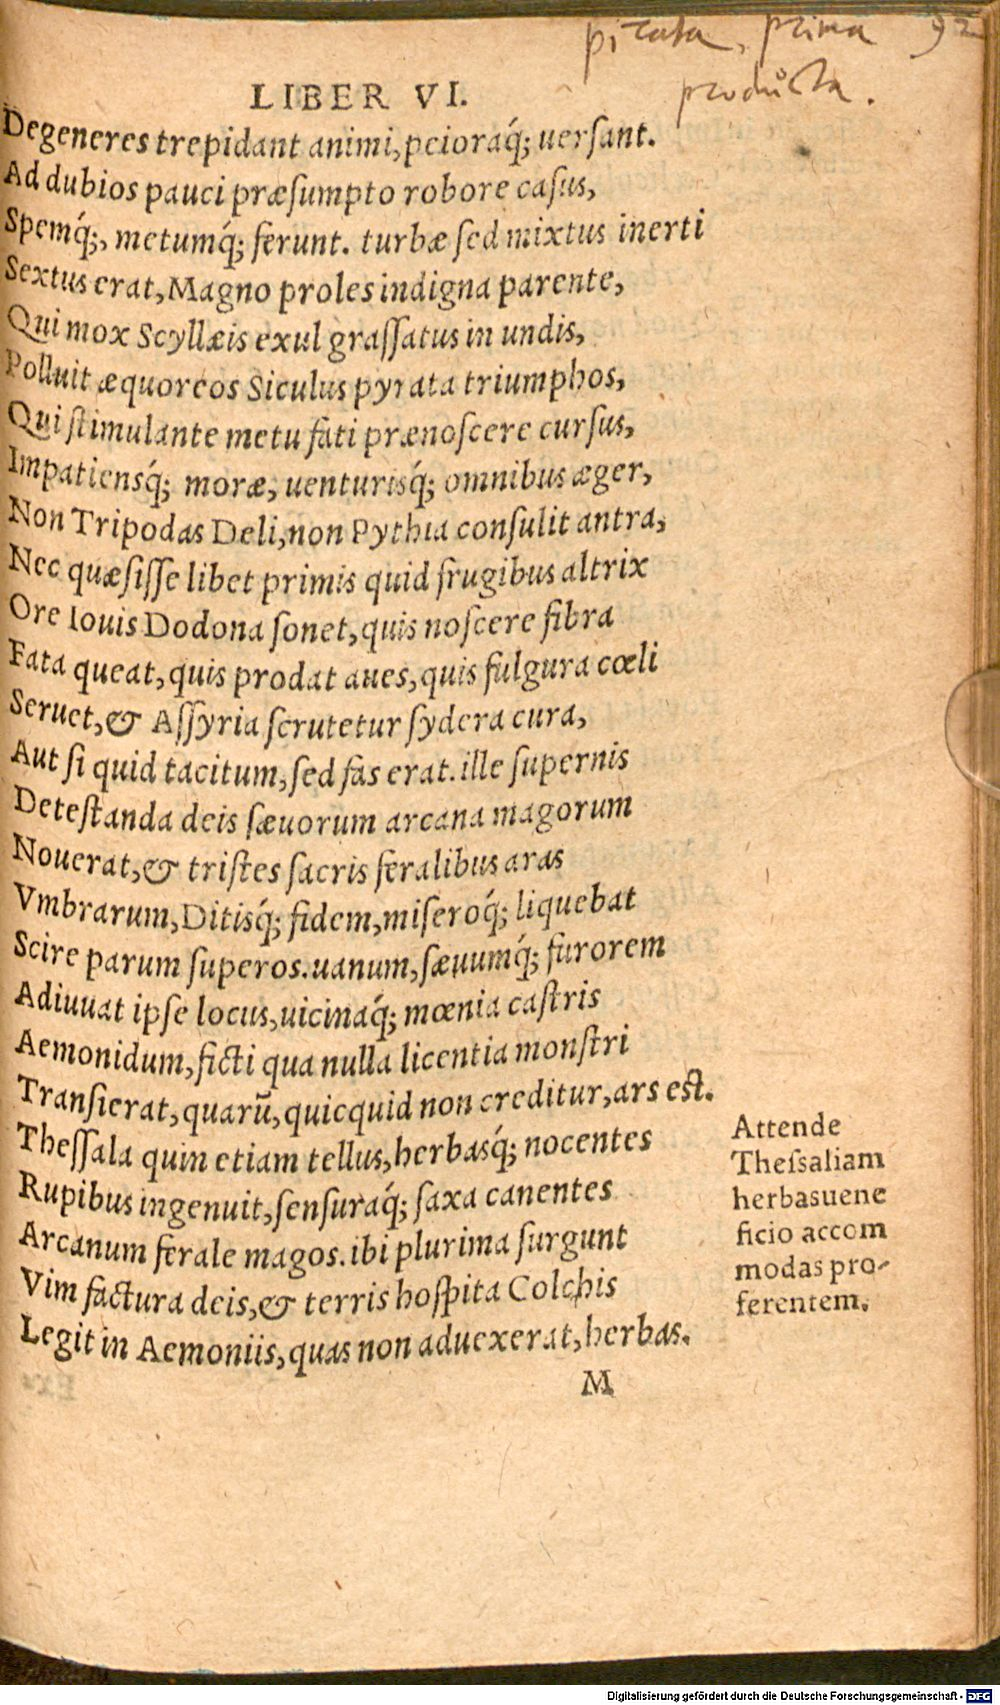 pirata, prima 92
producta.
LIBER VI.
Degeneres trepidant animi, peioraq́; uersant.
Ad dubios pauci præsumpto robore casus,
Spemq́;, metumq́; ferunt. turbæ sed mixtus inerti
Sextus erat, Magno proles indigna parente,
Qui mox Scyllæis exul grassatus in undis,
Polluit æquoreos Siculus pyrata triumphos,
Qui stimulante metu fati prænoscere cursus,
Impatiensq́; moræ, uenturisq́; omnibus æger,
Non Tripodas Deli, non Pythia consulit antra,
Nec quæsisse libet primis quid frugibus altrix
Ore Iouis Dodona sonet, quis noscere fibra
Fata queat, quis prodat aues, quis fulgura cœli
Seruet, & Assyria scrutetur sydera cura,
Aut si quid tacitum, sed fas erat. ille supernis
Detestanda deis sæuorum arcana magorum
Nouerat, & tristes sacris feralibus aras
Vmbrarum, Ditisq́; fidem, miseroq́; liquebat
Scire parum superos. uanum, sæuumq́; furorem
Adiuuat ipse locus, uicinaq́; mœnia castris
Aemonidum, ficti qua nulla licentia monstri
Transierat, quarū, quicquid non creditur, ars est.
Thessala quin etiam tellus, herbasq́; nocentes
Rupibus ingenuit, sensuraq́; saxa canentes
Arcanum ferale magos. ibi plurima surgunt
Vim factura deis, & terris hospita Colchis
Legit in Aemoniis, quas non aduexerat, herbas.
Attende
Thessaliam
herbasuene
ficio accom
modas pro-
ferentem.
M
Digitalisierung gefördert durch die Deutsche Forschungsgemeinschaft - DFG